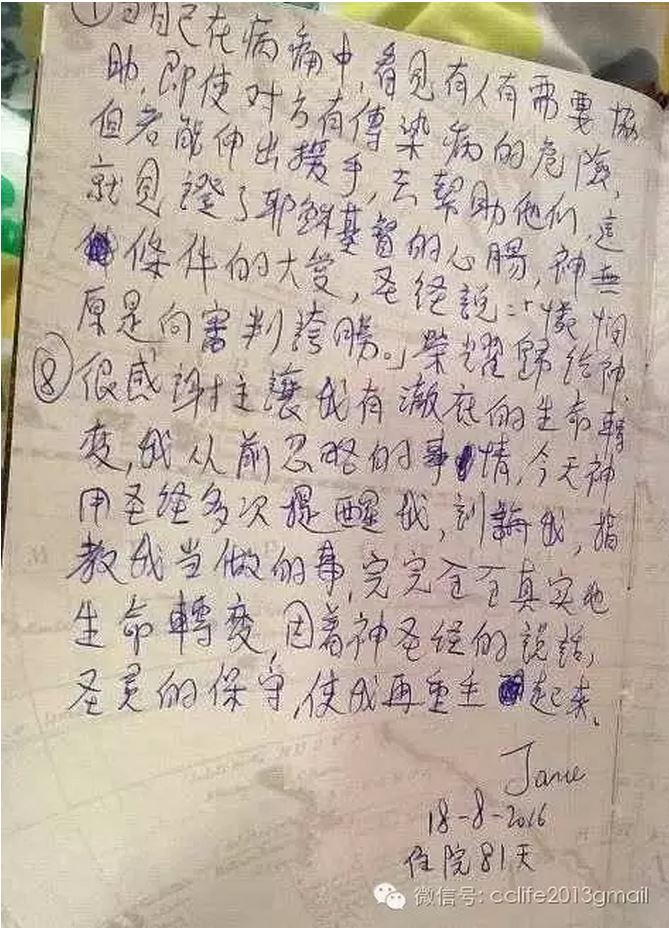 ①當自己在病痛中,看見有人有需要協
助,即使对方有傳染病的危險,
但若能伸出援手,去幫助他们,這
就見證了耶穌基督的心腸,神無
條件的大爱,圣经說:「憐憫
原是向審判誇勝。」榮耀歸给神
⑧很感謝主讓我有澈底的生命轉
变,我从前忽略的事情,今天神
用圣经多次提醒我,訓誨我,指
教我当做的事,完完全全真实地
生命轉变,因着神圣经的說話,
圣灵的保守,使我再重生起来。
Jane
18-8-2016
住院81天
微信号: cclife2013gmail